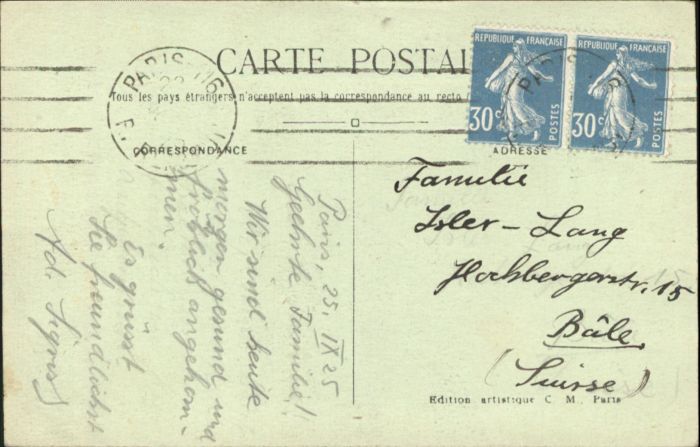 CARTE POSTALE
Tous les pays étrangers n'acceptent pas la correspondance au recto
CORRESPONDANCE
ADRESSE
REPUBLIQUE FRANÇAISE
30c
POSTES
REPUBLIQUE FRANÇAISE
30c
POSTES
PARIS 16
PARIS
Paris, 25. IX 25
Geehrte Familie!
Wir sind heute
morgen gesund und
fröhlich angekom-
men.
Es grüsst
Sie freundlichst
Ad.
Familie
Isler-Lang
Hochbergerstr. 15
Bâle
(Suisse)
Edition artistique C. M., Paris